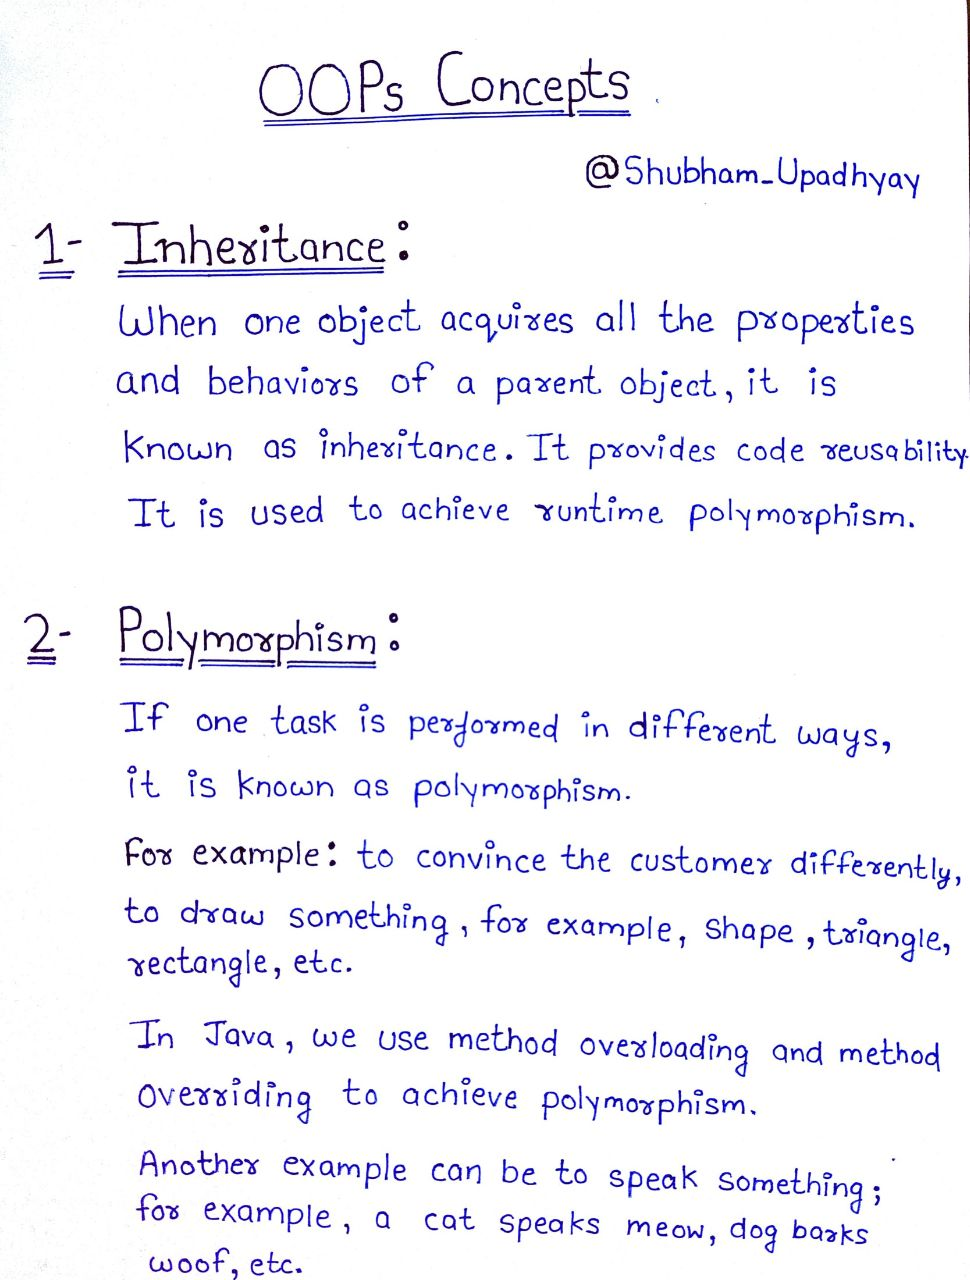 OOPs Concepts
@Shubham_Upadhyay
1- Inheritance:
When one object acquires all the properties
and behaviors of a parent object, it is
known as inheritance. It provides code reusability.
It is used to achieve runtime polymorphism.
2- Polymorphism:
If one task is performed in different ways,
it is known as polymorphism.
For example: to convince the customer differently,
to draw something, for example, shape, triangle,
rectangle, etc.
In Java, we use method overloading and method
overriding to achieve polymorphism.
Another example can be to speak something;
for example, a cat speaks meow, dog barks
woof, etc.